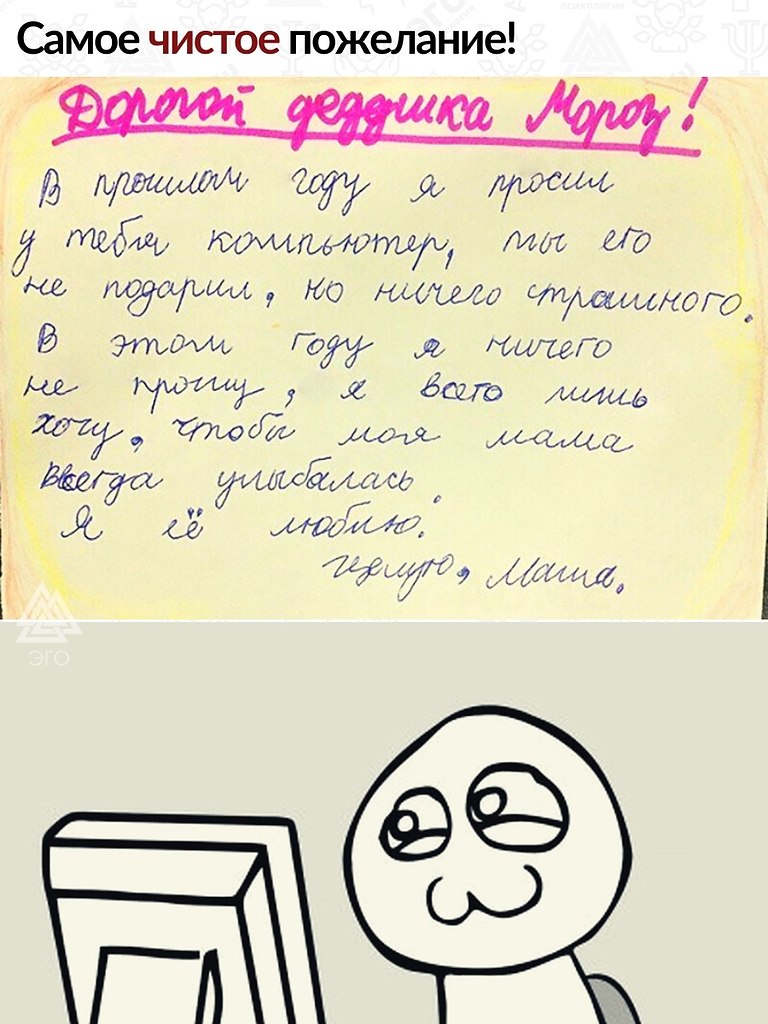 Самое чистое пожелание!
Дорогой дедушка Мороз!
В прошлом году я просил
у тебя компьютер, ты его
не подарил, но ничего страшного.
В этом году я ничего
не прошу, я всего лишь
хочу, чтобы моя мама
всегда улыбалась.
Я её люблю.
целую, Маша.
ЭГО